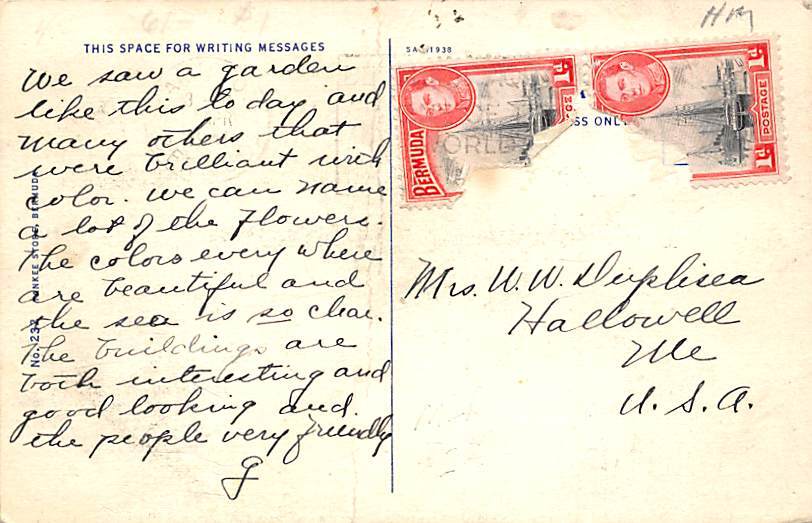 HM
THIS SPACE FOR WRITING MESSAGES
We saw a garden
like this to day and
many others that
were brilliant with
color. We can name
a lot of the flowers.
The colors every where
are beautiful and
the sea is so clear.
The buildings are
both interesting and
good looking and
the people very friendly
G
No. 237 YANKEE STORE, BERMUDA
1938
1D
BERMUDA
ORLD
1D
POSTAGE
1D
SS ONLY
Mrs. W. W. Duplisea
Hallowell
Me
U. S. A.